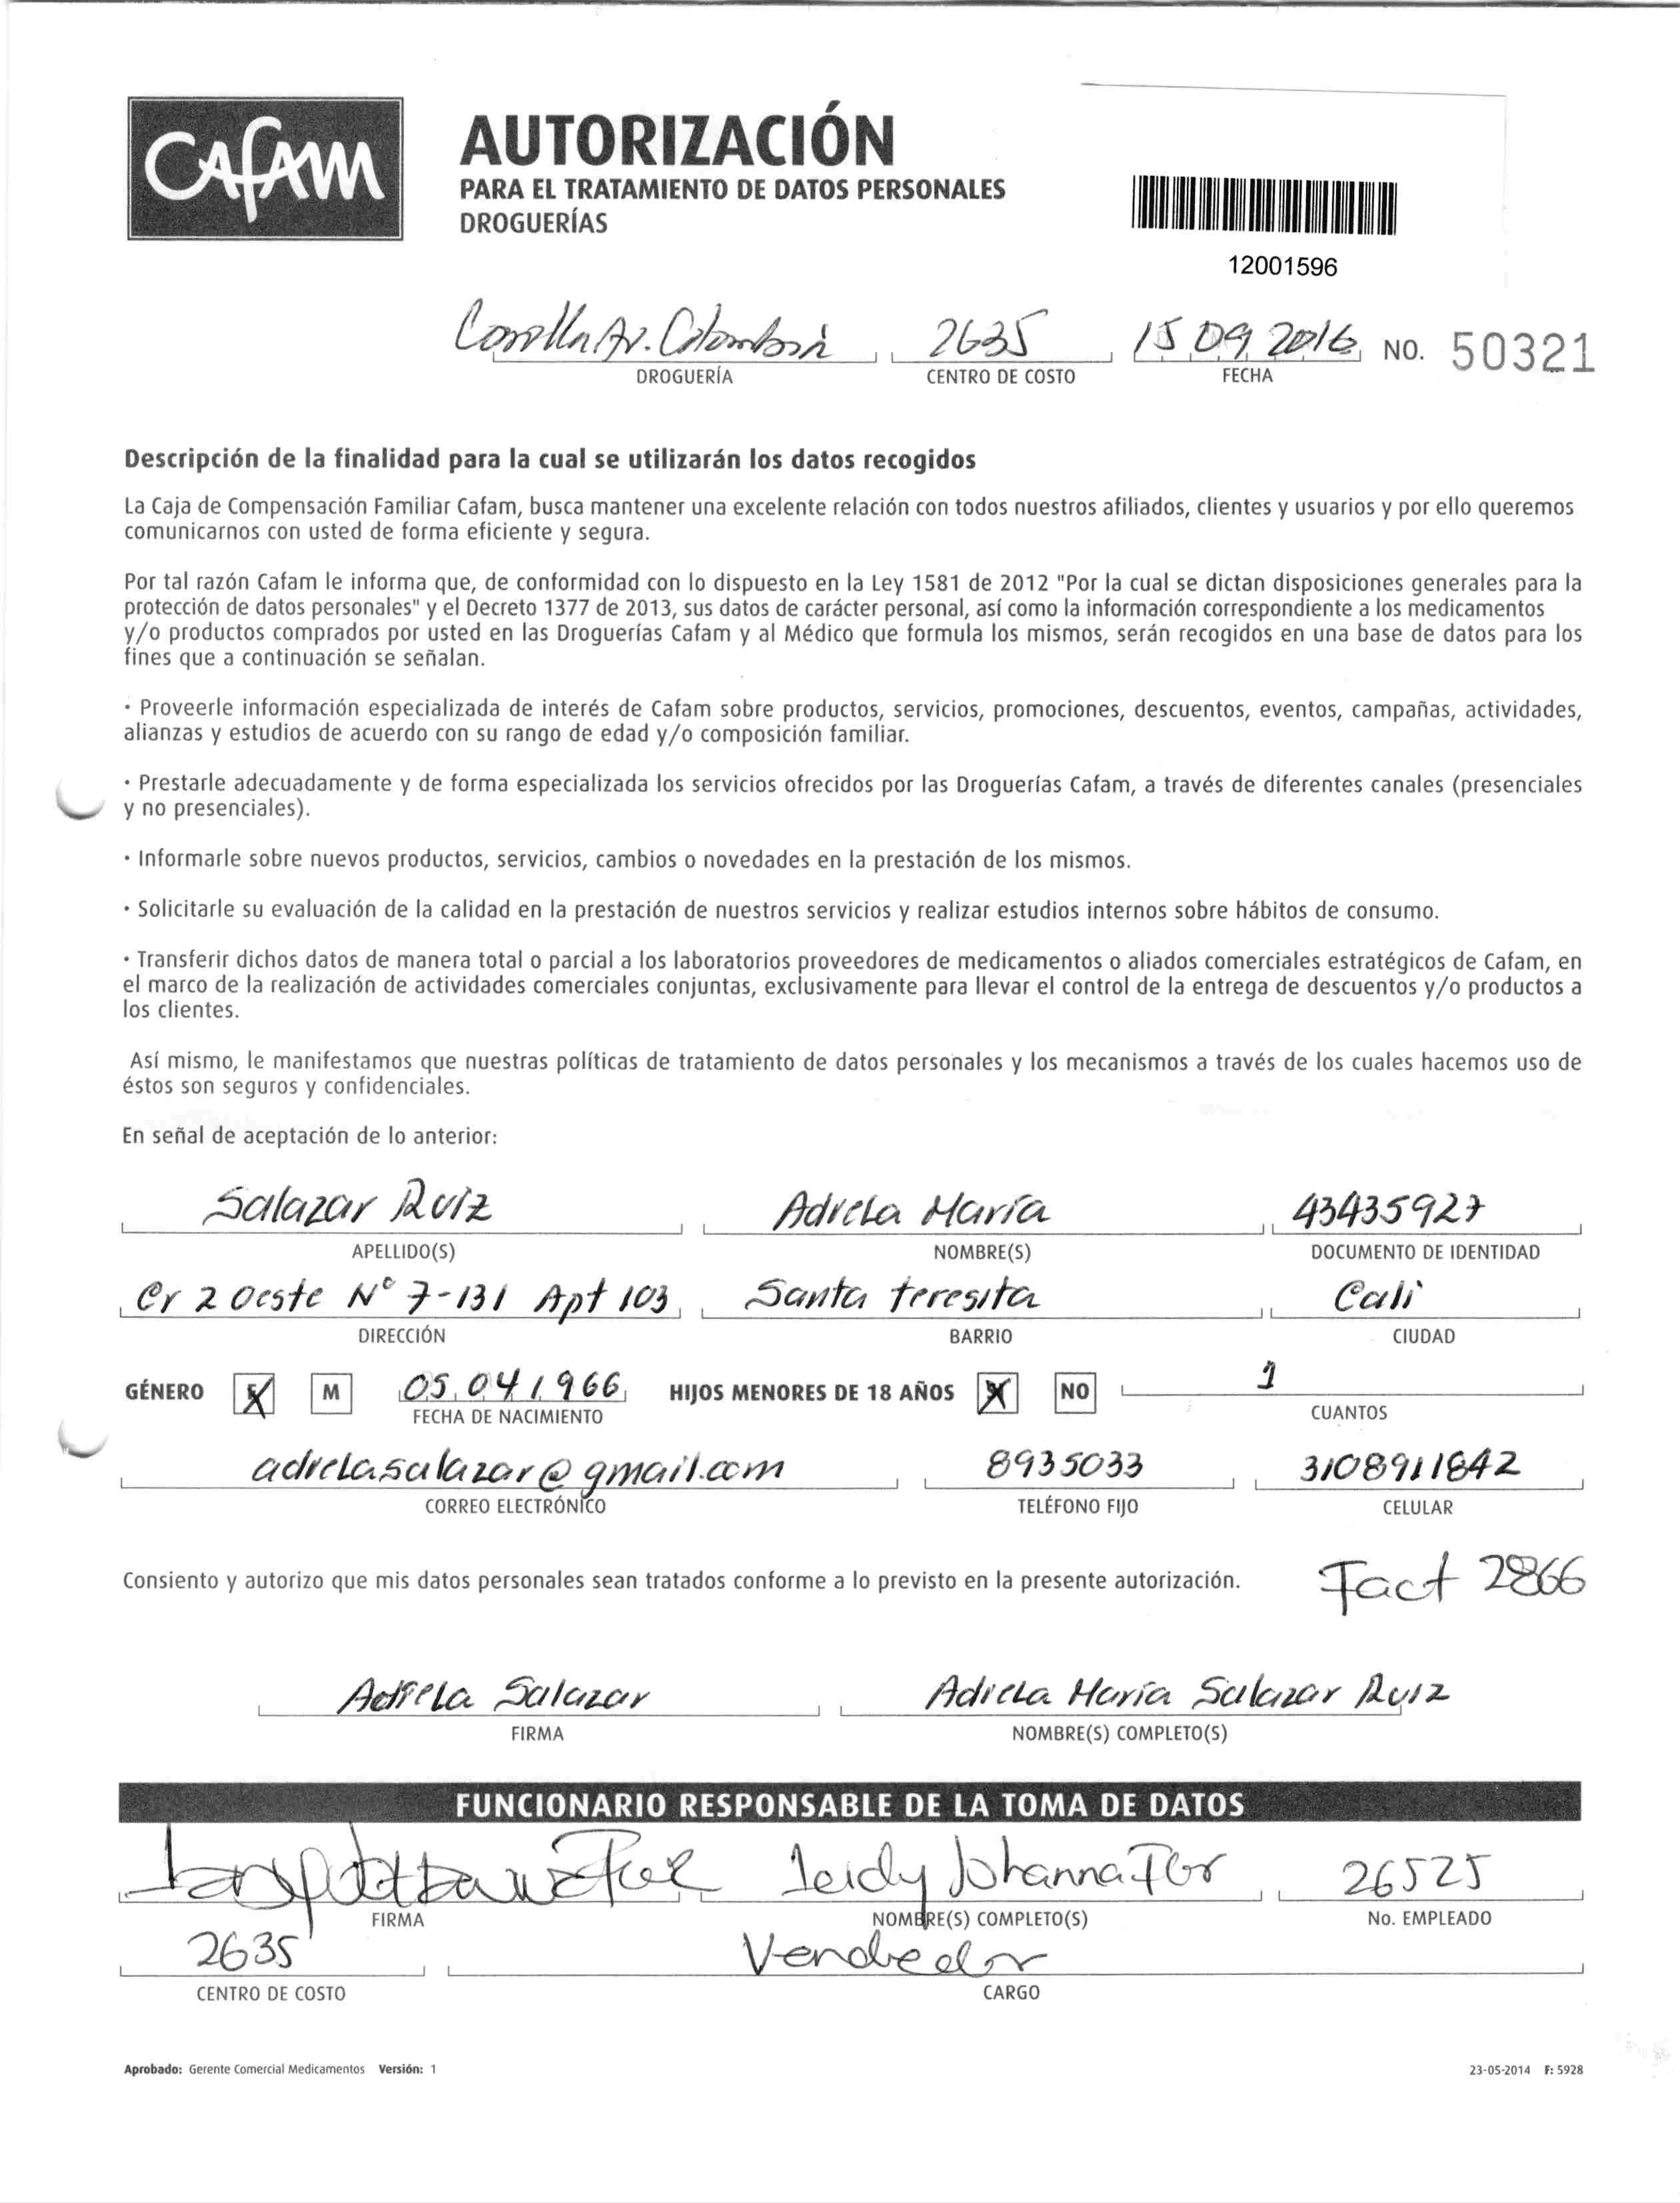 CAFAM
AUTORIZACIÓN
PARA EL TRATAMIENTO DE DATOS PERSONALES
DROGUERÍAS
12001596
Av. Colombia 2635 15 09 2016 NO. 50321
DROGUERÍA CENTRO DE COSTO FECHA
Descripción de la finalidad para la cual se utilizarán los datos recogidos
La Caja de Compensación Familiar Cafam, busca mantener una excelente relación con todos nuestros afiliados, clientes y usuarios y por ello queremos
comunicarnos con usted de forma eficiente y segura.
Por tal razón Cafam le informa que, de conformidad con lo dispuesto en la Ley 1581 de 2012 "Por la cual se dictan disposiciones generales para la
protección de datos personales" y el Decreto 1377 de 2013, sus datos de carácter personal, así como la información correspondiente a los medicamentos
y/o productos comprados por usted en las Droguerías Cafam y al Médico que formula los mismos, serán recogidos en una base de datos para los
fines que a continuación se señalan.
· Proveerle información especializada de interés de Cafam sobre productos, servicios, promociones, descuentos, eventos, campañas, actividades,
alianzas y estudios de acuerdo con su rango de edad y/o composición familiar.
· Prestarle adecuadamente y de forma especializada los servicios ofrecidos por las Droguerías Cafam, a través de diferentes canales (presenciales
y no presenciales).
· Informarle sobre nuevos productos, servicios, cambios o novedades en la prestación de los mismos.
· Solicitarle su evaluación de la calidad en la prestación de nuestros servicios y realizar estudios internos sobre hábitos de consumo.
· Transferir dichos datos de manera total o parcial a los laboratorios proveedores de medicamentos o aliados comerciales estratégicos de Cafam, en
el marco de la realización de actividades comerciales conjuntas, exclusivamente para llevar el control de la entrega de descuentos y/o productos a
los clientes.
Así mismo, le manifestamos que nuestras políticas de tratamiento de datos personales y los mecanismos a través de los cuales hacemos uso de
éstos son seguros y confidenciales.
En señal de aceptación de lo anterior:
Salazar Ruiz Adiela María 43435927
APELLIDO(S) NOMBRE(S) DOCUMENTO DE IDENTIDAD
Cr 2 Oeste N° 7-131 Apt 103 Santa teresita Cali
DIRECCIÓN BARRIO CIUDAD
GÉNERO F M 05 04 1966 HIJOS MENORES DE 18 AÑOS NO 1
FECHA DE NACIMIENTO CUANTOS
adielasalazar@gmail.com 8935033 3108911842
CORREO ELECTRÓNICO TELÉFONO FIJO CELULAR
Consiento y autorizo que mis datos personales sean tratados conforme a lo previsto en la presente autorización. Fact 2866
Adiela Salazar Adiela María Salazar Ruiz
FIRMA NOMBRE(S) COMPLETO(S)
FUNCIONARIO RESPONSABLE DE LA TOMA DE DATOS
leidy Johanna 26525
FIRMA NOMBRE(S) COMPLETO(S) No. EMPLEADO
2635 Vendedor
CENTRO DE COSTO CARGO
Aprobado: Gerente Comercial Medicamentos Versión: 1 23-05-2014 F: 5928